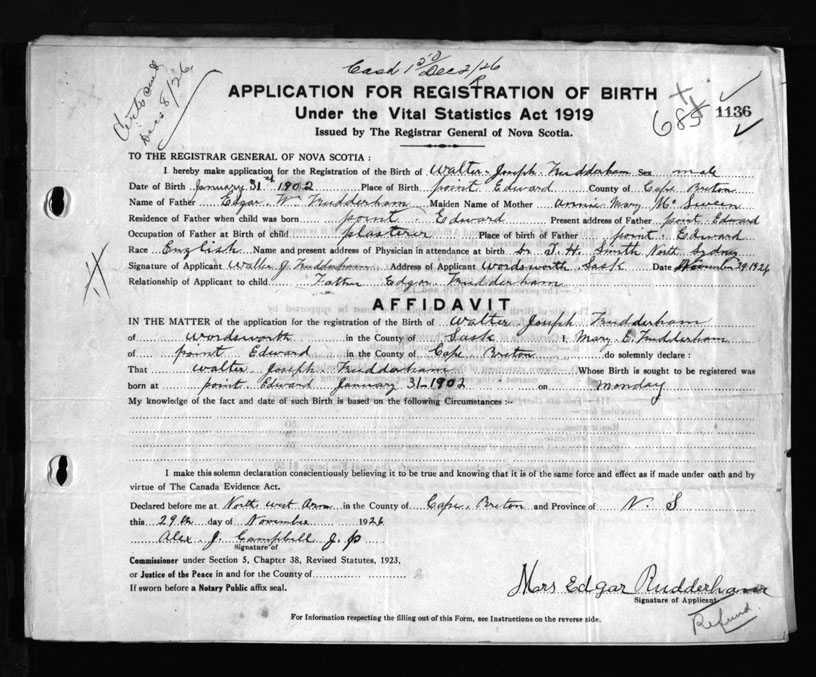 Cash 1 50 Dec 2/26
Dec 8/26
APPLICATION FOR REGISTRATION OF BIRTH
Under the Vital Statistics Act 1919
685 1136
Issued by The Registrar General of Nova Scotia.
TO THE REGISTRAR GENERAL OF NOVA SCOTIA :
I hereby make application for the Registration of the Birth of Walter Joseph Rudderham Sex male
Date of Birth January 31st 1902 Place of Birth point Edward County of Cape Breton
Name of Father Edgar W Rudderham Maiden Name of Mother Annie Mary McSween
Residence of Father when child was born point Edward Present address of Father point Edward
Occupation of Father at Birth of child plasterer Place of Birth of Father point Edward
Race English Name and present address of Physician in attendance at birth Dr T. H. Smith North Sydney
Signature of Applicant Walter J Rudderham Address of Applicant Wordsworth Sask Date November 29 1926
Relationship of Applicant to child Father Edgar Rudderham
AFFIDAVIT
IN THE MATTER of the application for the registration of the Birth of Walter Joseph Rudderham
of Wordsworth in the County of Sask I, Mary E. Rudderham
of point Edward in the County of Cape Breton do solemnly declare :
That Walter Joseph Rudderham Whose Birth is sought to be registered was
born at point Edward January 31-1902 on monday
My knowledge of the fact and date of such Birth is based on the following Circumstances :-
I make this solemn declaration conscientiously believing it to be true and knowing that it is of the same force and effect as if made under oath and by
virtue of The Canada Evidence Act.
Declared before me at North west Arm in the County of Cape Breton and Province of N. S
this 29th day of November 1926
Alex. J. Campbell J. P
Signature of
Commissioner under Section 5, Chapter 38, Revised Statutes, 1923,
or Justice of the Peace in and for the County of
If sworn before a Notary Public affix seal.
Mrs Edgar Rudderham
Signature of Applicant
Refund.
For Information respecting the filling out of this Form, see Instructions on the reverse side.